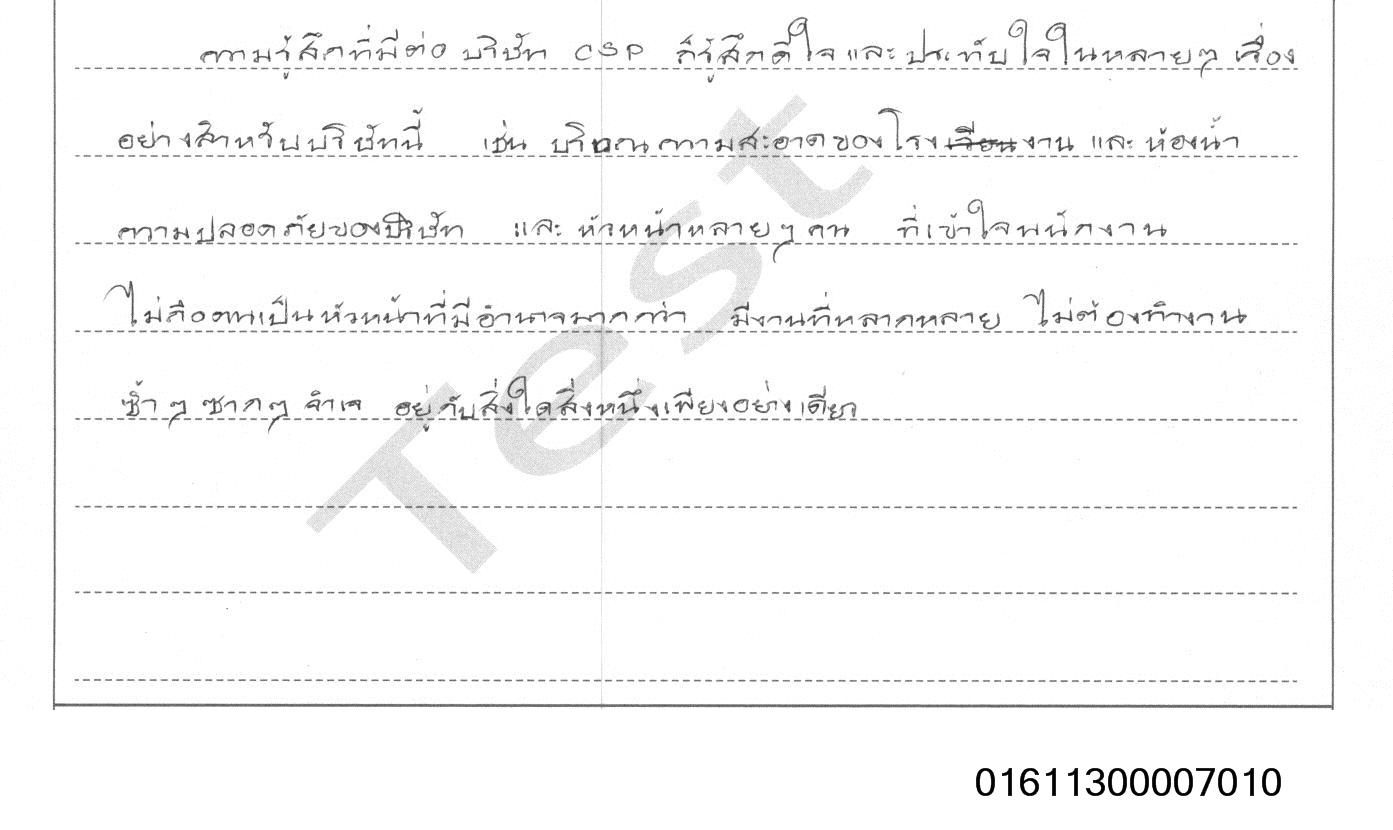 ความรู้สึกที่มีต่อ บริษัท CSP ก็รู้สึกดีใจ และประทับใจในหลายๆ เรื่อง
อย่างสำหรับบริษัทนี้ เช่น บริเวณความสะอาดของโรงเรียนงาน และ ห้องน้ำ
ความปลอดภัยของบริษัท และ หัวหน้าหลายๆ คน ที่เข้าใจพนักงาน
ไม่ถือตนเป็นหัวหน้าที่มีอำนาจมากกว่า มีงานที่หลากหลาย ไม่ต้องทำงาน
ซ้ำๆ ซากๆ จำเจ อยู่กับสิ่งใดสิ่งหนึ่งเพียงอย่างเดียว
Test
01611300007010